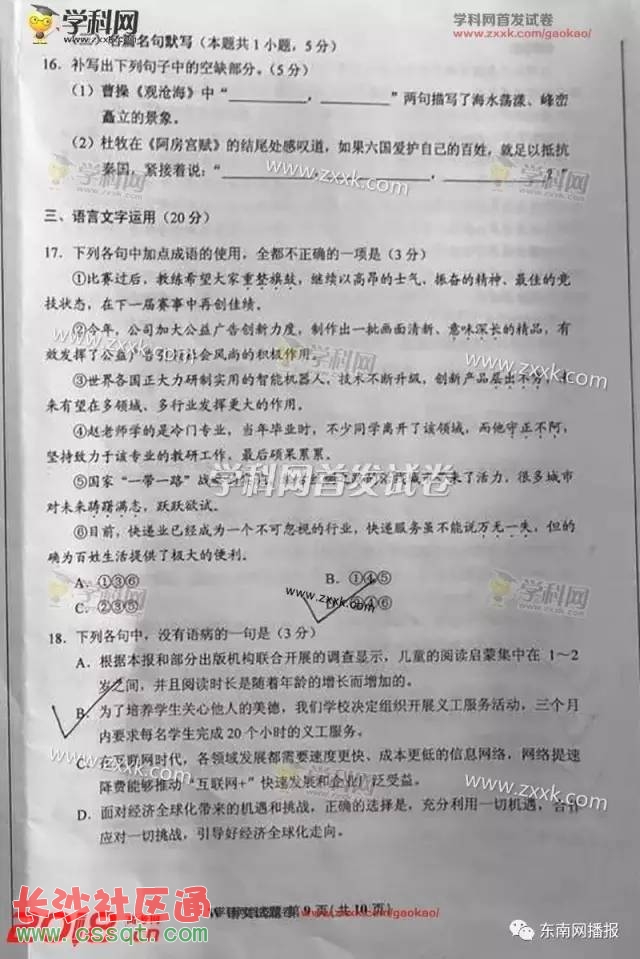 学科网
WWW.ZXXK.COM
学科网首发试卷
www.zxxk.com/gaokao/
名篇名句默写（本题共1小题，5分）
16．补写出下列句子中的空缺部分。（5分）
（1）曹操《观沧海》中“____________，____________”两句描写了海水荡漾、峰峦
矗立的景象。
（2）杜牧在《阿房宫赋》的结尾处感叹道，如果六国爱护自己的百姓，就足以抵抗
秦国，紧接着说：“
学科网
www.zxxk.com
三、语言文字运用（20分）
17．下列各句中加点成语的使用，全都不正确的一项是（3分）
①比赛过后，教练希望大家重整旗鼓，继续以高昂的士气、振奋的精神、最佳的竞
技状态，在下一届赛事中再创佳绩。
②今年，公司加大公益广告创新力度，制作出一批画面清新、意味深长的精品，有
效发挥了公益广告引领社会风尚的积极作用。
www.zxxk.com
学科网
www.zxxk.com
③世界各国正大力研制实用的智能机器人，技术不断升级，创新产品层出不穷，未
来有望在多领域、多行业发挥更大的作用。
④赵老师学的是冷门专业，当年毕业时，不少同学离开了该领域，而他守正不阿，
坚持致力于该专业的教研工作，最后硕果累累。
学科网首发试卷
⑤国家“一带一路”战 来了活力，很多城市
对未来踌躇满志，跃跃欲试。
⑥目前，快递业已经成为一个不可忽视的行业，快递服务虽不能说万无一失，但的
确为百姓生活提供了极大的便利。
A．①③⑥ B．①④⑤
C．②③⑤ ②④⑥
学科网
www.zxxk.com
学科网
18．下列各句中，没有语病的一句是（3分）
A．根据本报和部分出版机构联合开展的调查显示，儿童的阅读启蒙集中在 1～2
岁之间，并且阅读时长是随着年龄的增长而增加的。
B．为了培养学生关心他人的美德，我们学校决定组织开展义工服务活动，三个月
内要求每名学生完成20个小时的义工服务。
www.zxxk.com
C．在互联网时代，各领域发展都需要速度更快、成本更低的信息网络，网络提速
降费能够推动“互联网+”快速发展和企业广泛受益。
学科网
www.zxxk.com
D．面对经济全球化带来的机遇和挑战，正确的选择是，充分利用一切机遇，合作
应对一切挑战，引导好经济全球化走向。
语文试题 第9页（共10页）
.com/gaokao/
长沙社区通
www.cssqtn.com
东南网播报